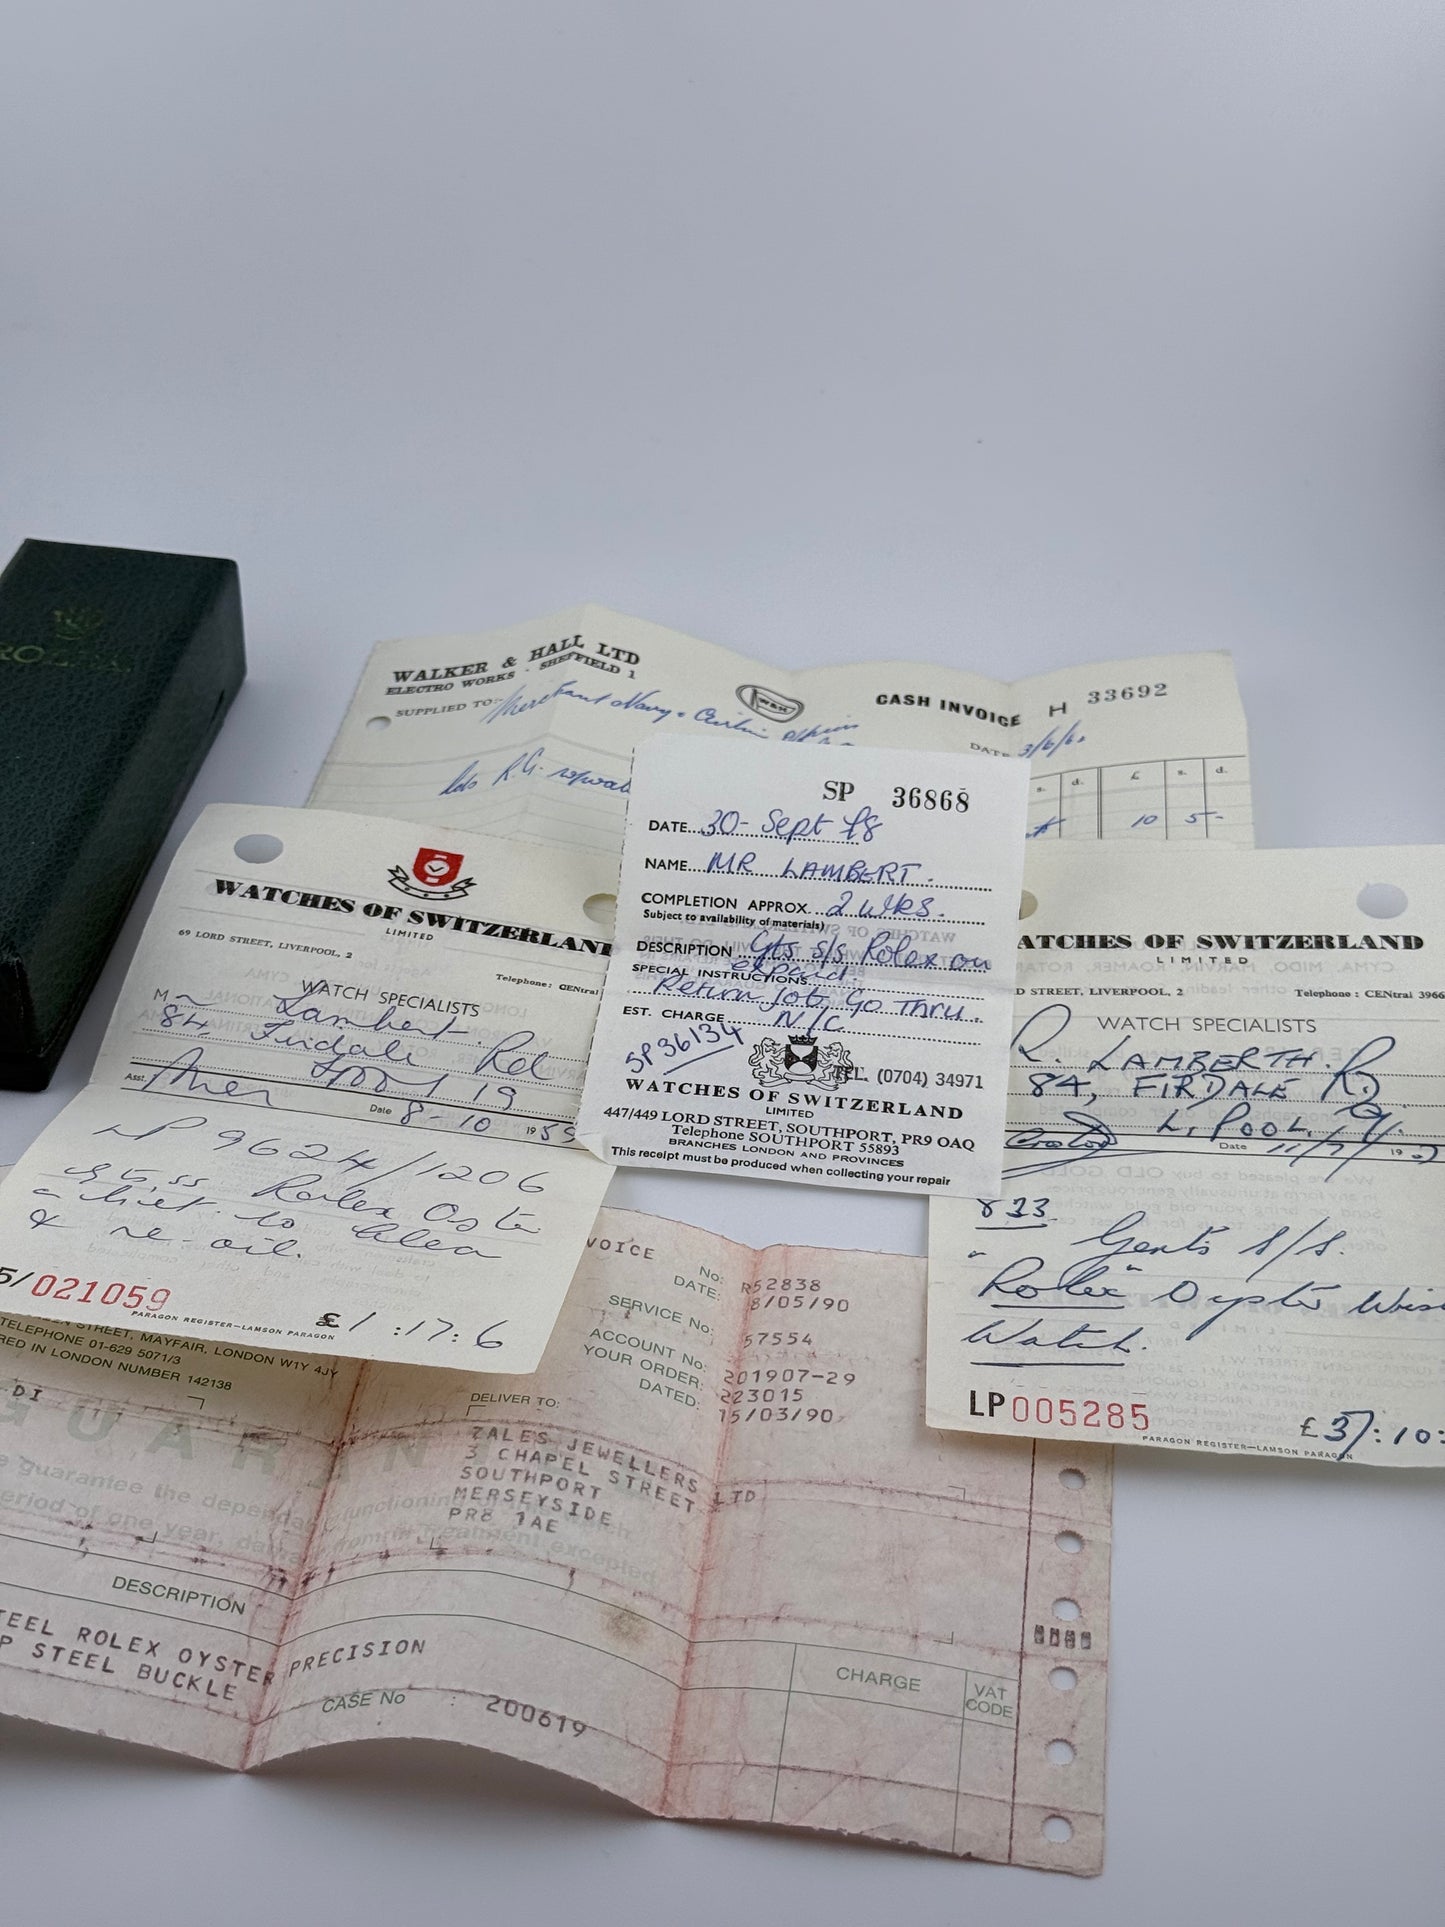 WALKER & HALL LTD
ELECTRO WORKS · SHEFFIELD 1
W&H
CASH INVOICE H 33692
SUPPLIED TO:- Merchant Navy
DATE 3/6/6
s. d. £ s. d.
10 5 -
SP 36868
DATE 30- Sept 88
NAME MR LAMBERT.
COMPLETION APPROX. 2 WKS.
Subject to availability of materials)
DESCRIPTION Gts s/s Rolex on
expand
SPECIAL INSTRUCTIONS
Return job Go Thru.
EST. CHARGE N/C
SP36134
TEL. (0704) 34971
WATCHES OF SWITZERLAND
LIMITED
447/449 LORD STREET, SOUTHPORT, PR9 OAQ
Telephone SOUTHPORT 55893
BRANCHES LONDON AND PROVINCES
This receipt must be produced when collecting your repair
WATCHES OF SWITZERLAND
LIMITED
69 LORD STREET, LIVERPOOL, 2
Telephone: CENtral
WATCH SPECIALISTS
M Lambert.
84, Firdale Rd
L'pool 19
Asst.
Date 8-10 1959
LP 9624/1206
Rolex Oster
to Clean
& re-oil.
5/021059
PARAGON REGISTER—LAMSON PARAGON
£1:17:6
ATCHES OF SWITZERLAND
LIMITED
D STREET, LIVERPOOL, 2
Telephone : CENtral 3966
WATCH SPECIALISTS
R. LAMBERTH.
84, FIRDALE RD
L. POOL. 9.
Date 11/7/ 19
833.
Gents S/S.
"Rolex" Oyster Wris
Watch.
LP005285
PARAGON REGISTER—LAMSON PARAGON
£37:10:
EEN STREET, MAYFAIR, LONDON W1Y 4JY
TELEPHONE 01-629 5071/3
RED IN LONDON NUMBER 142138
DI
VOICE
No: R52838
DATE: 8/05/90
SERVICE No: 57554
ACCOUNT No: 201907-29
YOUR ORDER: 223015
DATED: 15/03/90
DELIVER TO:
ZALES JEWELLERS LTD
3 CHAPEL STREET
SOUTHPORT
MERSEYSIDE
PR8 1AE
GUARAN
e guarantee the dependable functioning of this watch
eriod of one year, damage from ill treatment excepted
DESCRIPTION
CHARGE
VAT CODE
TEEL ROLEX OYSTER PRECISION
P STEEL BUCKLE
CASE No : 200619